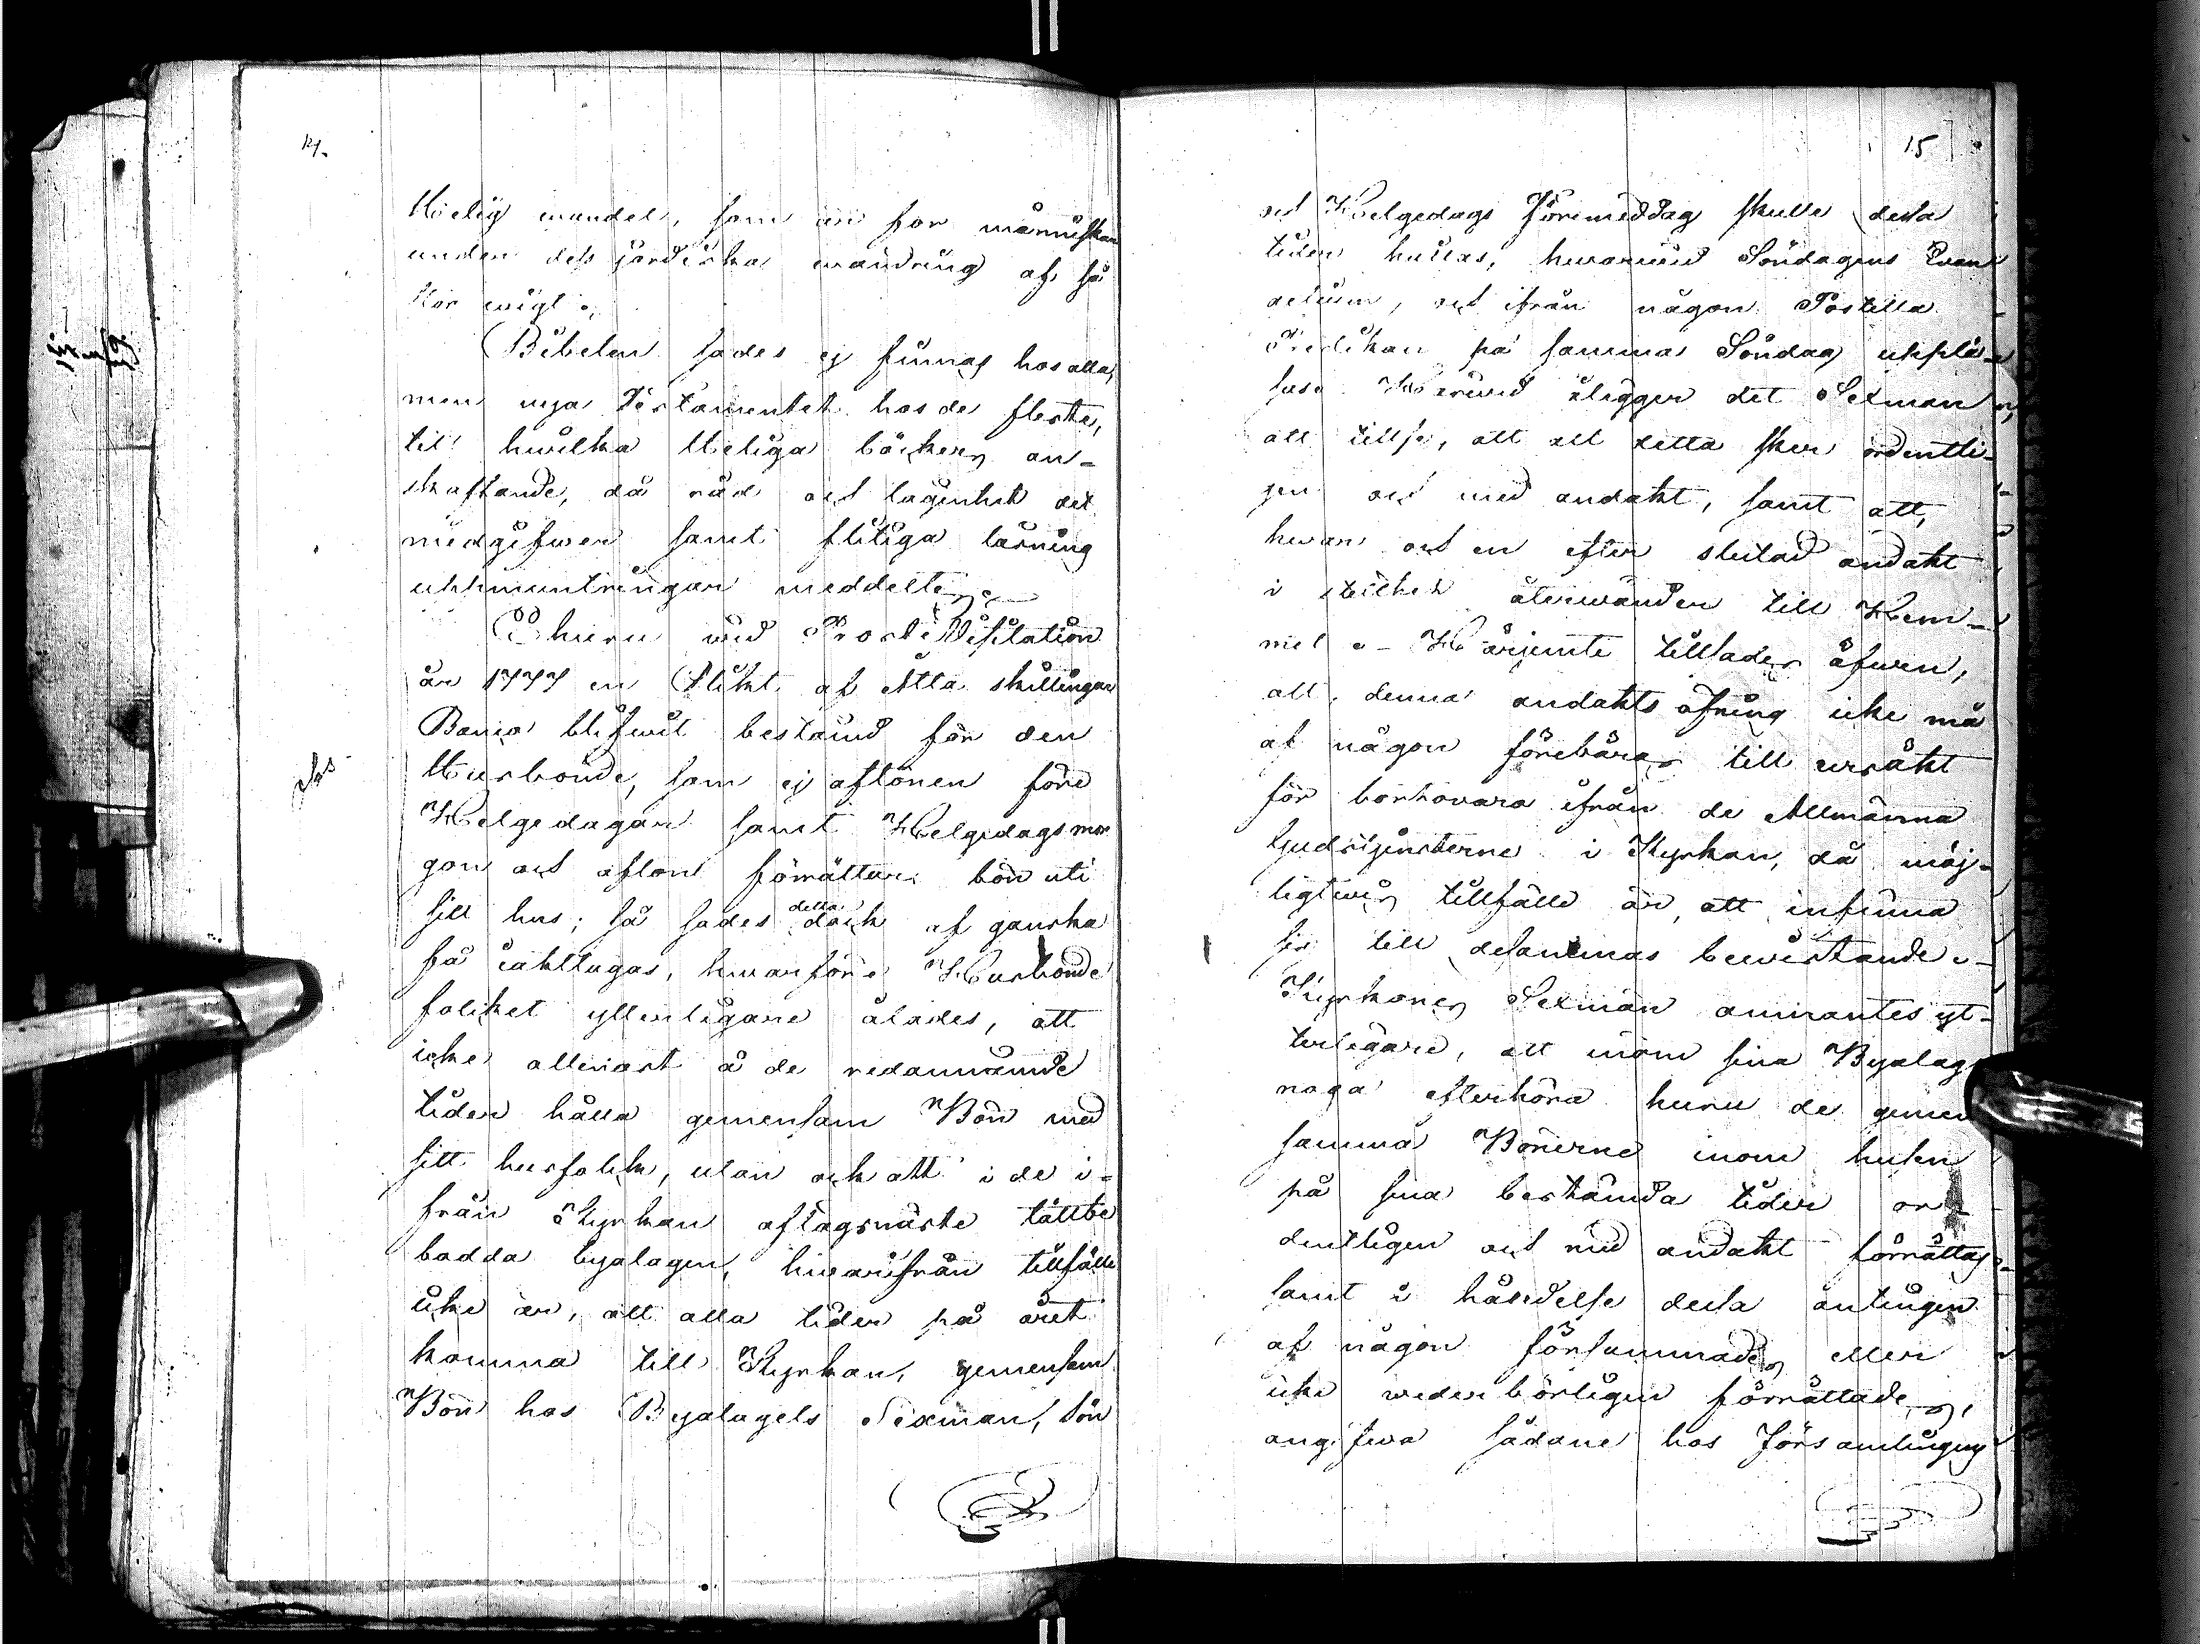 14.
Helig wandel, som är för människan
under dess jordiska wandring af så
stor wigt.
Bibelen sades ej finnas hos alla,
men nya Testamentet hos de fleste,
til hwilka Heliga böckers an-
skaffande, då råd och lägenhet det
medgifwer samt flitiga läsning
uppmuntringar meddeltes.
Ehuru wid Prosti Visitation
år 1777 en Plikt af Åtta skillingar
Banco blifwit bestämd för den
Husbonde, som ej aftonen före
Helgedagar samt Helgedags mor
gon och afton förrättar bön uti
sitt hus; så sades detta dock af ganska
få iakttagas, hwarföre Husbonde
folcket ytterligare ålades, att
icke allenast å de redannämnde
tider hålla gemensam Bön med
sitt husfolck, utan ock att i de i-
från Kyrkan aflägsnaste tättbe
bodda byalagen, hwarifrån tillfälle
icke är, att alla tider på året
komma till Kyrkan, gemensam
Bön hos Byalagets Sexman, Sön
15
och Helgedags Förmiddag skulle dessa
tider hållas, hwarwid Söndagens Evan
gelium, och ifrån någon Postilla
Predikan på samma Söndag upplä-
sas. Herwid ålägger det Sexman
att tillse, att allt detta sker ordentli-
gen och med andakt, samt att,
hwar och en efter slutad andakt
i stillhet återwänder till Hem-
met. Härjemte tillades äfwen,
att denna andakts öfning icke må
af någon förebäras till ursäkt
för bortowaro ifrån de Allmänna
Gudstjensterne i Kyrkan, då möj-
ligtwis tillfälle är, att infinna
sig till desammas bewistande.
Kyrkones Sexmän anmantes yt-
terligare, att inom sina Byalag
noga efterhöra huru de gemen
samma Bönerne inom husen
på sina bestämda tider or-
dentligen och med andakt förrättas
samt i händelse dessa antingen
af någon försummades eller
icke wederbörligen förrättades,
angifwa sådane hos Församlingens